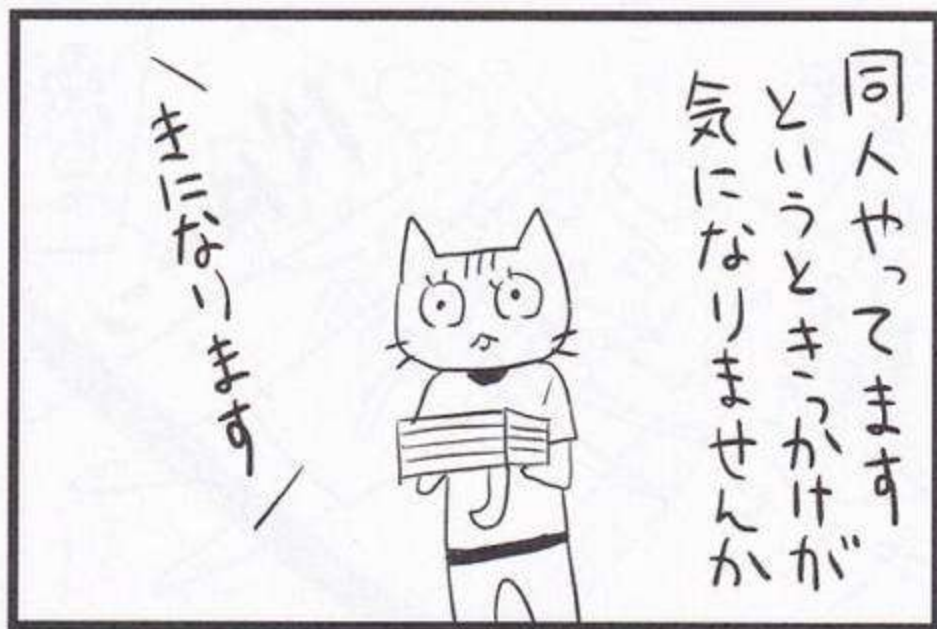 同人やってます
というときっかけが
気になりませんか
きになります